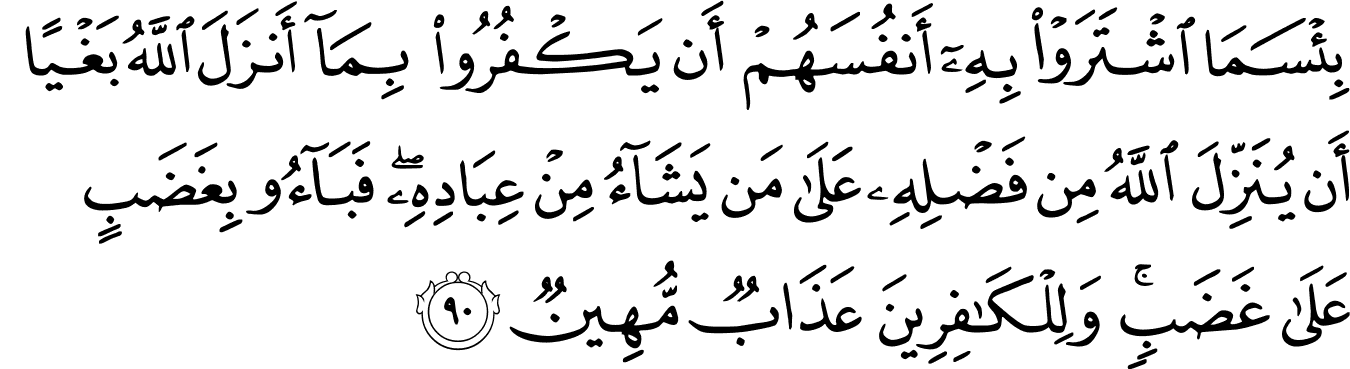 بِئْسَمَا ٱشْتَرَوْا۟ بِهِۦٓ أَنفُسَهُمْ أَن يَكْفُرُوا۟ بِمَآ أَنزَلَ ٱللَّهُ بَغْيًا
أَن يُنَزِّلَ ٱللَّهُ مِن فَضْلِهِۦ عَلَىٰ مَن يَشَآءُ مِنْ عِبَادِهِۦ ۖ فَبَآءُو بِغَضَبٍ
عَلَىٰ غَضَبٍ ۚ وَلِلْكَـٰفِرِينَ عَذَابٌ مُّهِينٌ ٩٠